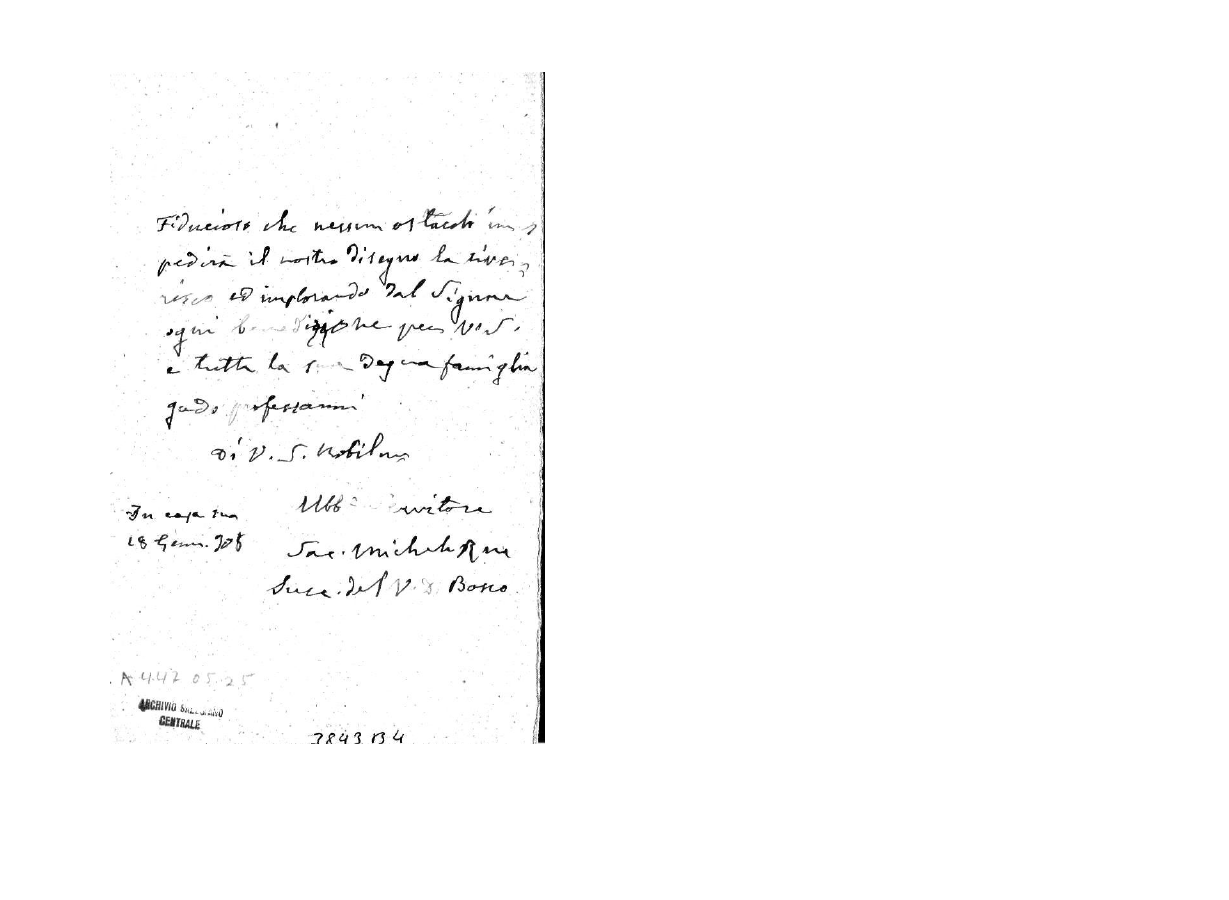 Fiducioso che nessun ostacolo im
pedirà il nostro disegno la rive
risco ed implorando dal Signore
ogni benedizione per V. S.
e tutta la sua degna famiglia
godo professarmi
Di V. S. Nobilma
In casa sua
18 Genn.
Servitore
Sac. Michele Rua
Succ. del V. D. Bosco
A 447 05 25
ARCHIVIO SALESIANO
CENTRALE
3843 B4